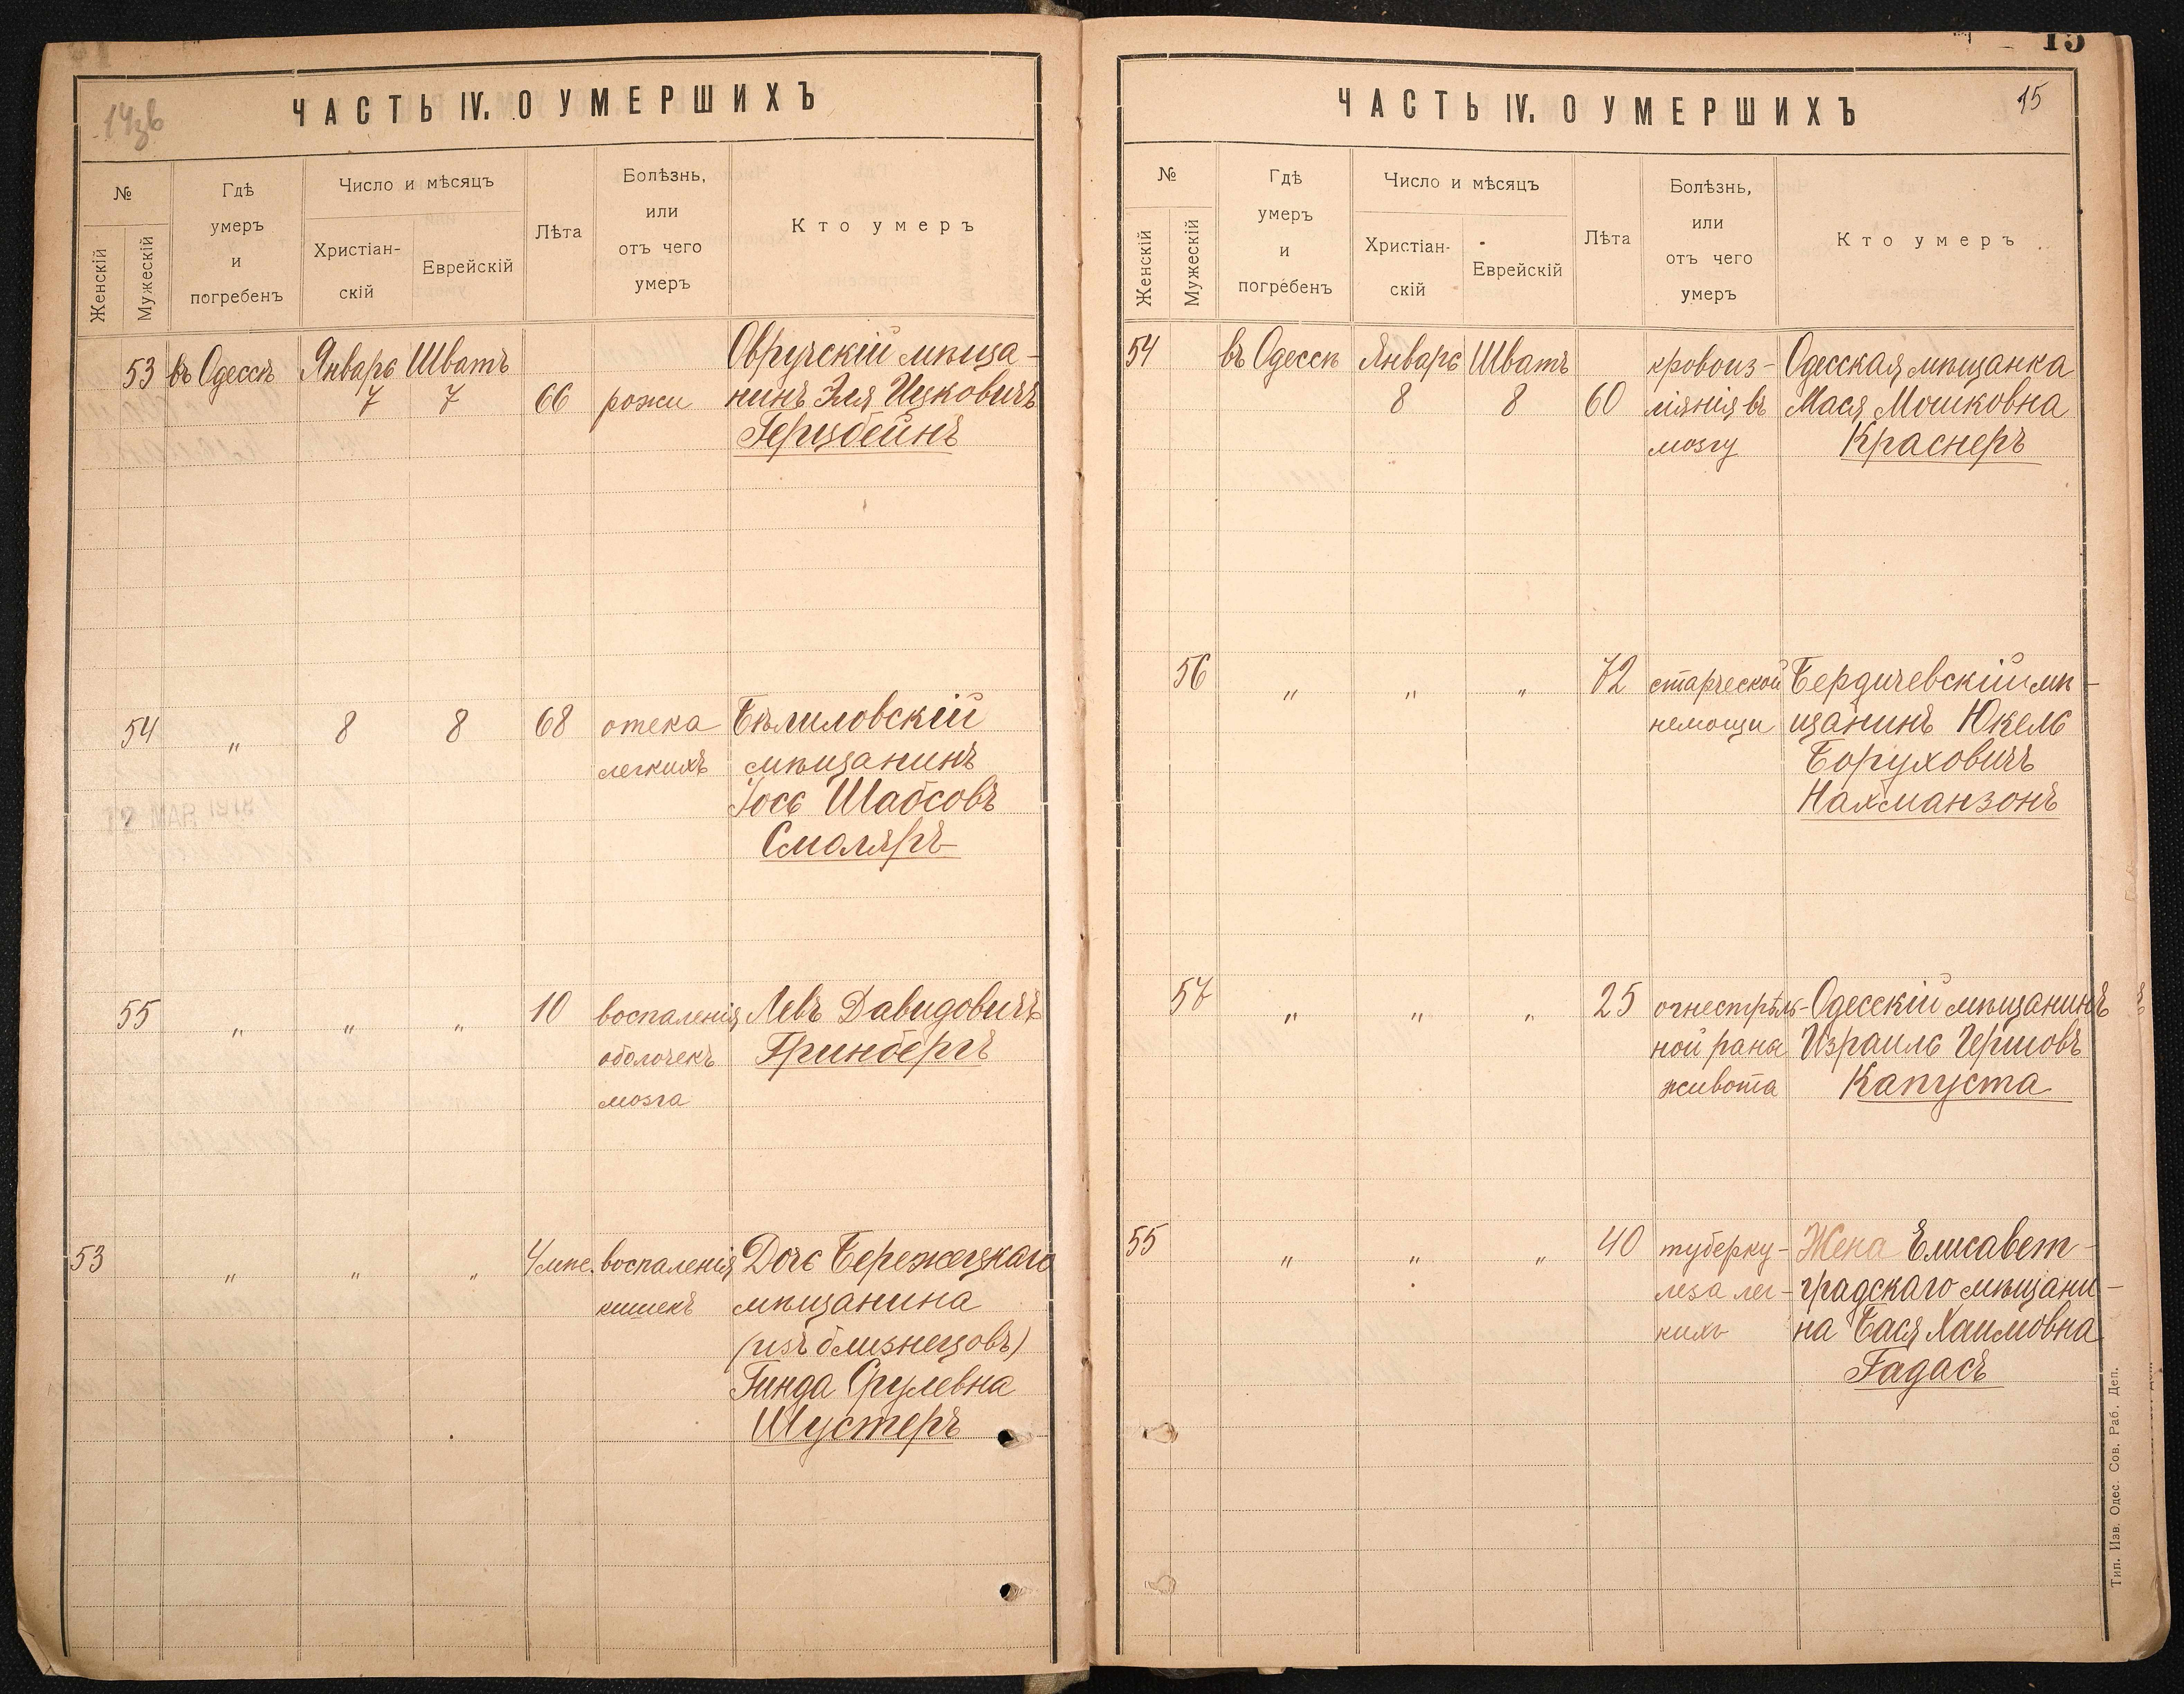 14зв
ЧАСТЬ IV. О УМЕРШИХЪ
№
Женскій
Мужескій
Гдѣ
умеръ
и
погребенъ
Число и мѣсяцъ
Христіан-
скій
Еврейскій
Лѣта
Болѣзнь,
или
отъ чего
умеръ
Кто умеръ
53 въ Одессѣ Январь Шватъ Овручскій мѣща-
7 7 66 рожи нинъ Эля Ицковичъ
Герцбейнъ
54 „ 8 8 68 отека Бѣлиловскій
легкихъ мѣщанинъ
Іось Шабсовъ
Смоляръ
55 „ „ „ 10 воспаленія Левъ Давидовичъ
оболочекъ Гринбергъ
мозга
53 „ „ „ 4 мѣс. воспаленія Дочь Бережецкаго
кишекъ мѣщанина
(изъ близнецовъ)
Гинда Срулевна
Шустеръ
12 MAR 1918
15
15
ЧАСТЬ IV. О УМЕРШИХЪ
№
Женскій
Мужескій
Гдѣ
умеръ
и
погребенъ
Число и мѣсяцъ
Христіан-
скій
Еврейскій
Лѣта
Болѣзнь,
или
отъ чего
умеръ
Кто умеръ
54 въ Одессѣ Январь Шватъ кровоиз- Одесская мѣщанка
8 8 60 ліянія въ Мася Мошковна
мозгу Краснеръ
56 „ „ „ 72 старческой Бердичевскій мѣ-
немощи щанинъ Юкель
Боруховичъ
Нахманзонъ
57 „ „ „ 25 огнестрѣль- Одесскій мѣщанинъ
ной раны Израиль Гершовъ
живота Капуста
55 „ „ „ 40 туберку- Жена Елисавет-
леза лег- градскаго мѣщани-
кихъ на Бася Хаимовна
Гадасъ
Тип. Изв. Одес. Сов. Раб. Деп.